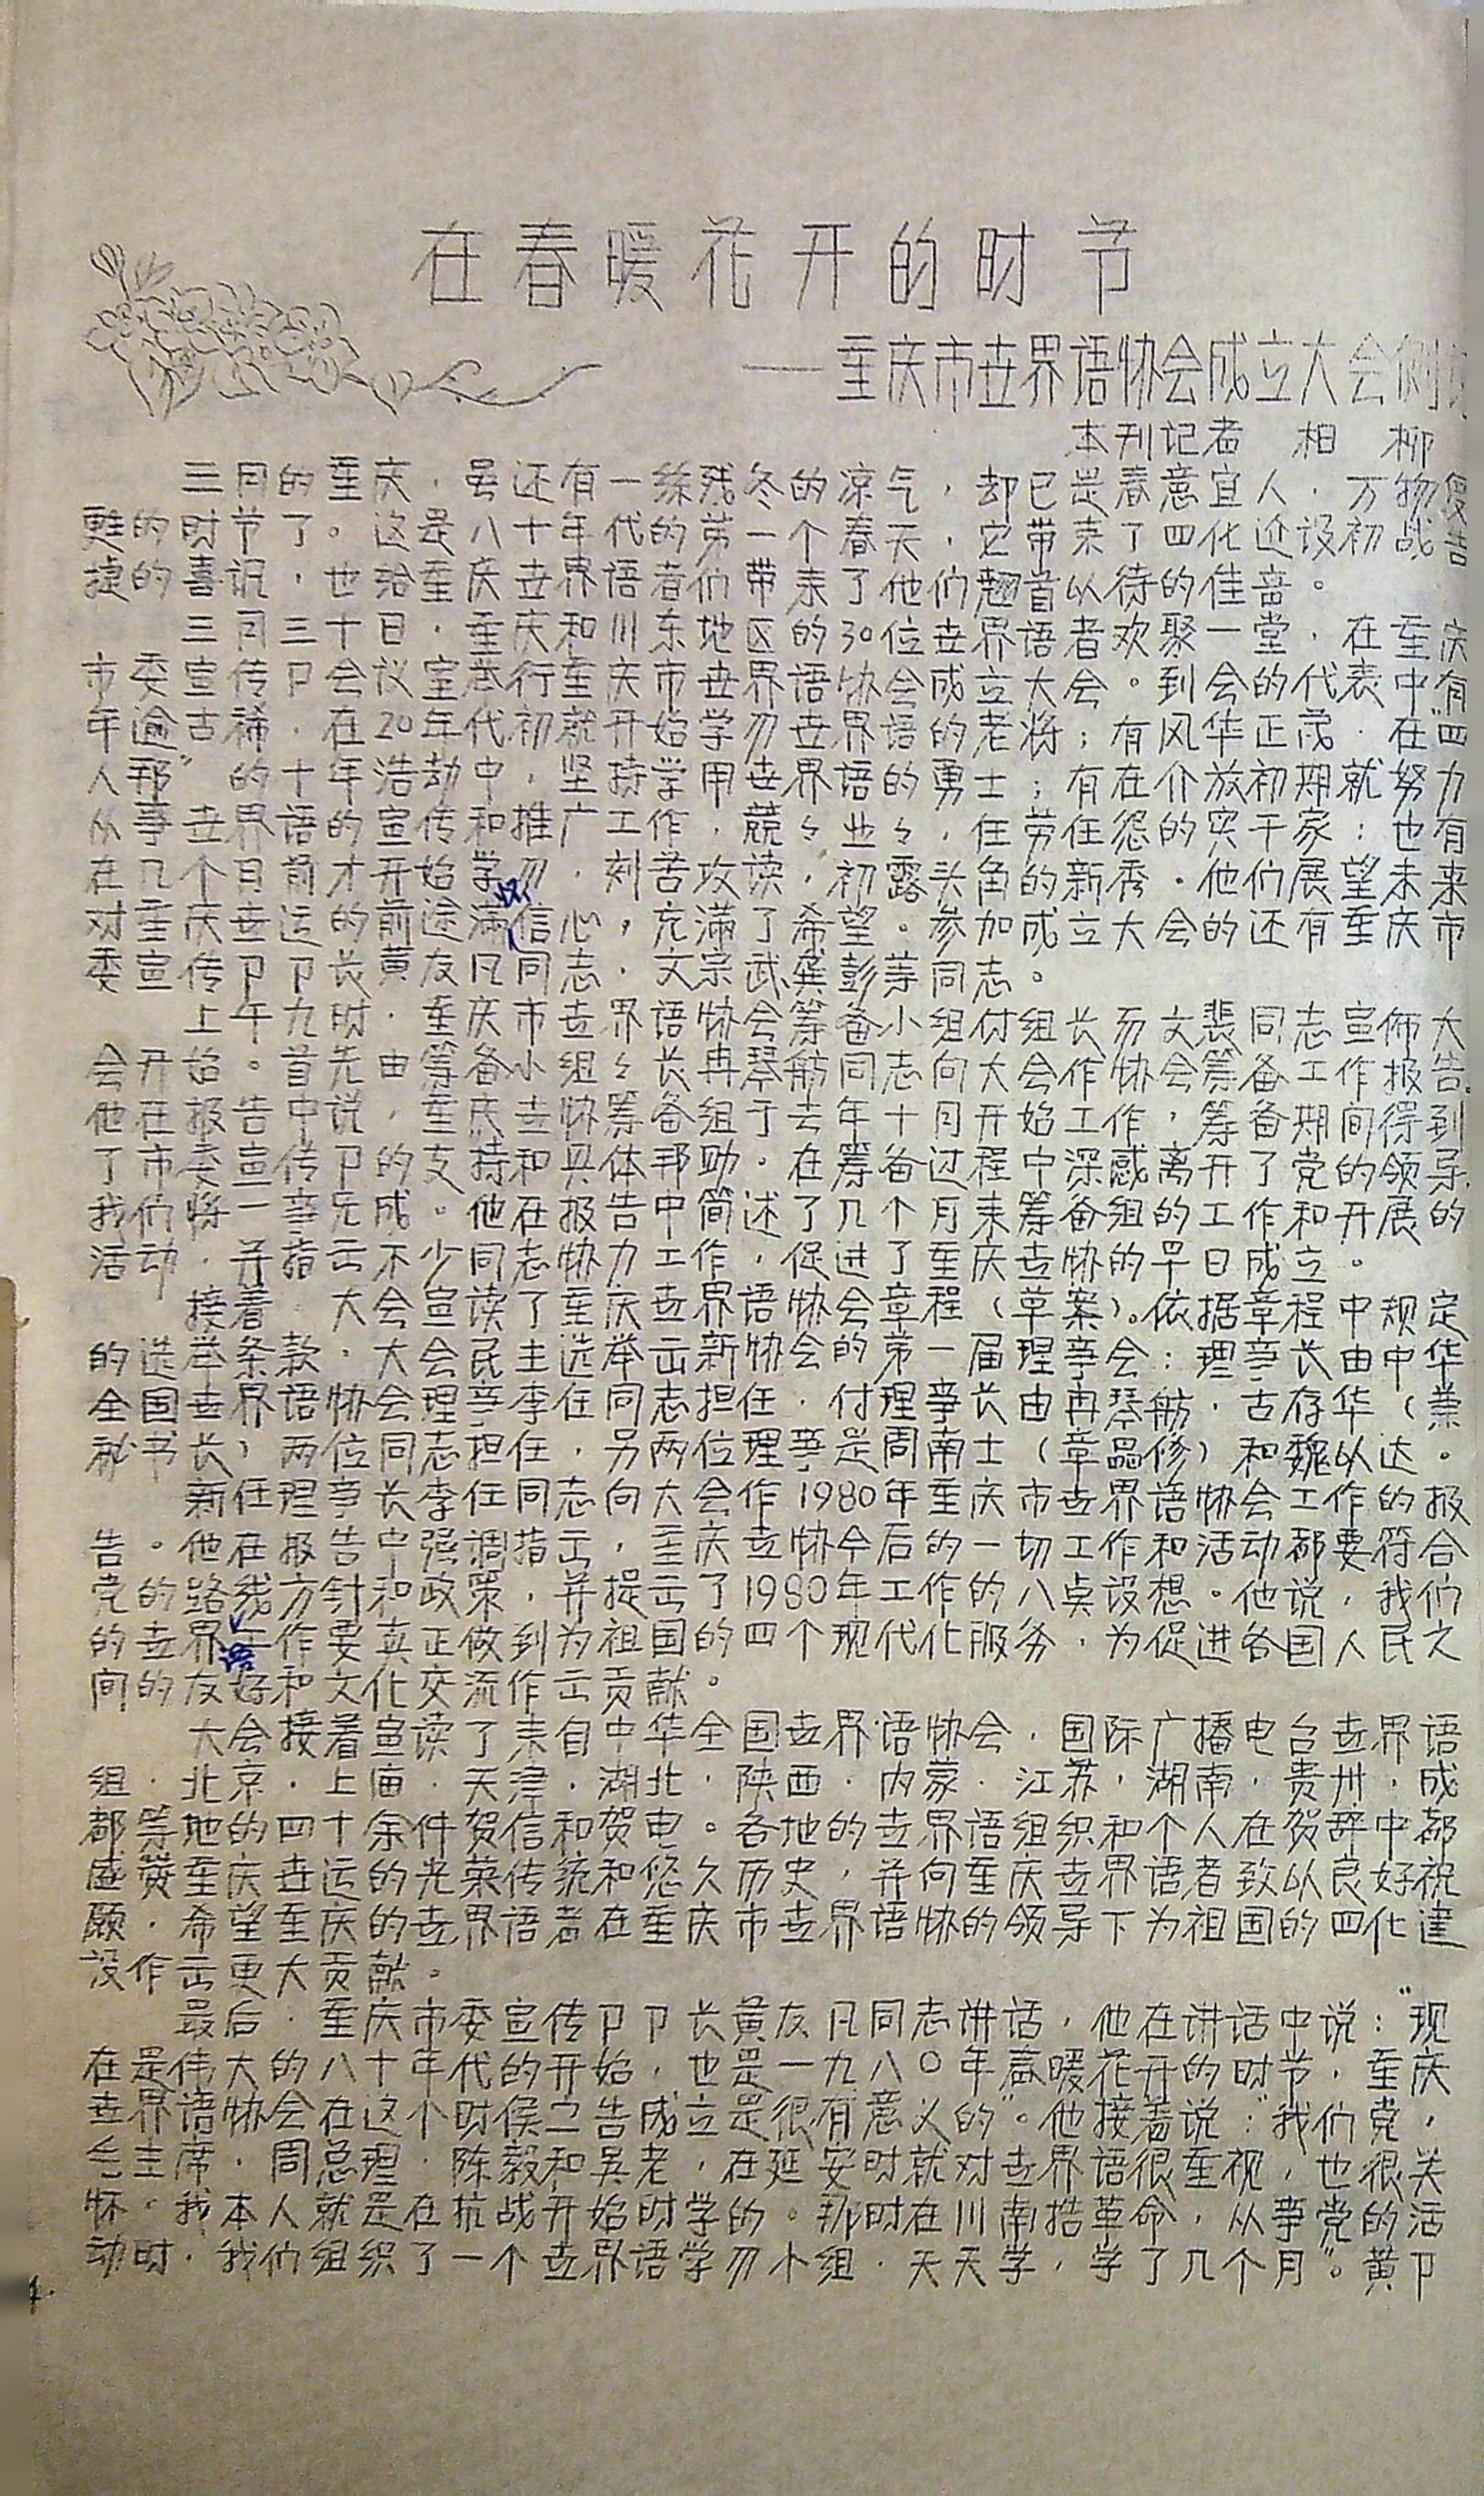 在春暖花开的时节
——重庆市世界语协会成立大会侧
本刊记者 相 柳
三月的重庆，虽还有一缕残冬的凉气，却已是春意宜人，万物复
甦的时节了。这是八十年代的第一个春天，它带来了四化近设初战告
捷的喜讯，也给重庆世界语者们带来了他们翘首以待的佳音。
三月三十日，重庆和川东地区的30位世界语者欢聚一堂，在重庆
市委宣传卩会议室举行重庆市世界语协会成立大会。到会的代表中有
年逾古稀，在20年代初就开始学习世界语的老将；有风华正茂，在“四
人邦”的十年浩劫中，坚持学用世界语的勇士；有在介放初期就努力
从事世界语的宣传和推广工作，兢々业々，任劳任怨的实干家；也有
在几个月前才开始学习，刻苦攻读，初露头角的新秀。他们展望未来
对重庆世运的前途满怀信心，充满了希望。参加成立大会的还有重庆市
委宣传卩卩长黄友凡同志，文宗武、龚彭等同志。
上午九时，重庆市世界语协会筹备小组付组长 文裴同志宣佈大
会开始。首先由筹备小组々长冉琴舫同志向大会作协会筹备工作报告。
他在报告中说，重庆世协筹备组于去年十月开始工作，筹备期间得到
了市委宣传卩的支持和具体邦助。在筹备过程中深感离开了党的领导，
我们将一事无成。他在报告中简述了几个月来筹备组的工作和开展的
活动，并指出不少同志协力工作，促进了重庆世协的早日成立。
接着大会宣读了重庆世界语协会章程（草案）。依据章程中规定
的选举条款，大会民主选举出新协会的第一届理事会：理事长由中华
全国世界语协会理事李任同志担任，付理事长由冉琴舫，古存华（兼
秘书长）两位同志担任，另两位理事是周南士（章品修）和魏以达。
新任理事长李任同志向大会作1980年重庆市世界语协会工作的报
告。他在报告中强调指出，重庆世协今后的一切工作和活动都要符合
党的路线方针和政策，并提出了1980年工作的八点设想。他说，我们
的世界语工作要真正做到为祖国的四个现代化服务，为促进各国人民之
间的友好和文化交流作出贡献。
大会接着宣读了来自中华全国世界语协会，国际广播电台世界语
组，北京，上海，天津，湖北，陕西，内蒙，江苏，湖南，贵州，成
都等地的四十余件贺信和贺电。各地的世界语组织和个人在贺辞中都
盛赞重庆世运的光荣传统和悠久历史，并向重庆世界语者致以良好祝
愿，希望重庆的世界语者在重庆市世界语协的领导下为祖国的四化建
设作出更大贡献。
最后，重庆市委宣传卩卩长黄友凡同志讲话，他在讲话中说：“现
在是伟大的八十年代的开始，也是一九八〇年春暖花开的时节，重庆
世界语协会在这个时候宣告成立是很有意义的”。他接着说：“我们党，
毛主席，周总理，陈毅和吴老，在延安时就对世界语很重视，也很关
怀。我本人就是在抗战开始时学的。那时在川南搞革命，从事党的活
动时，我们组织了一个世界语学习小组，天天学，学了几个月”。黄卩
4.